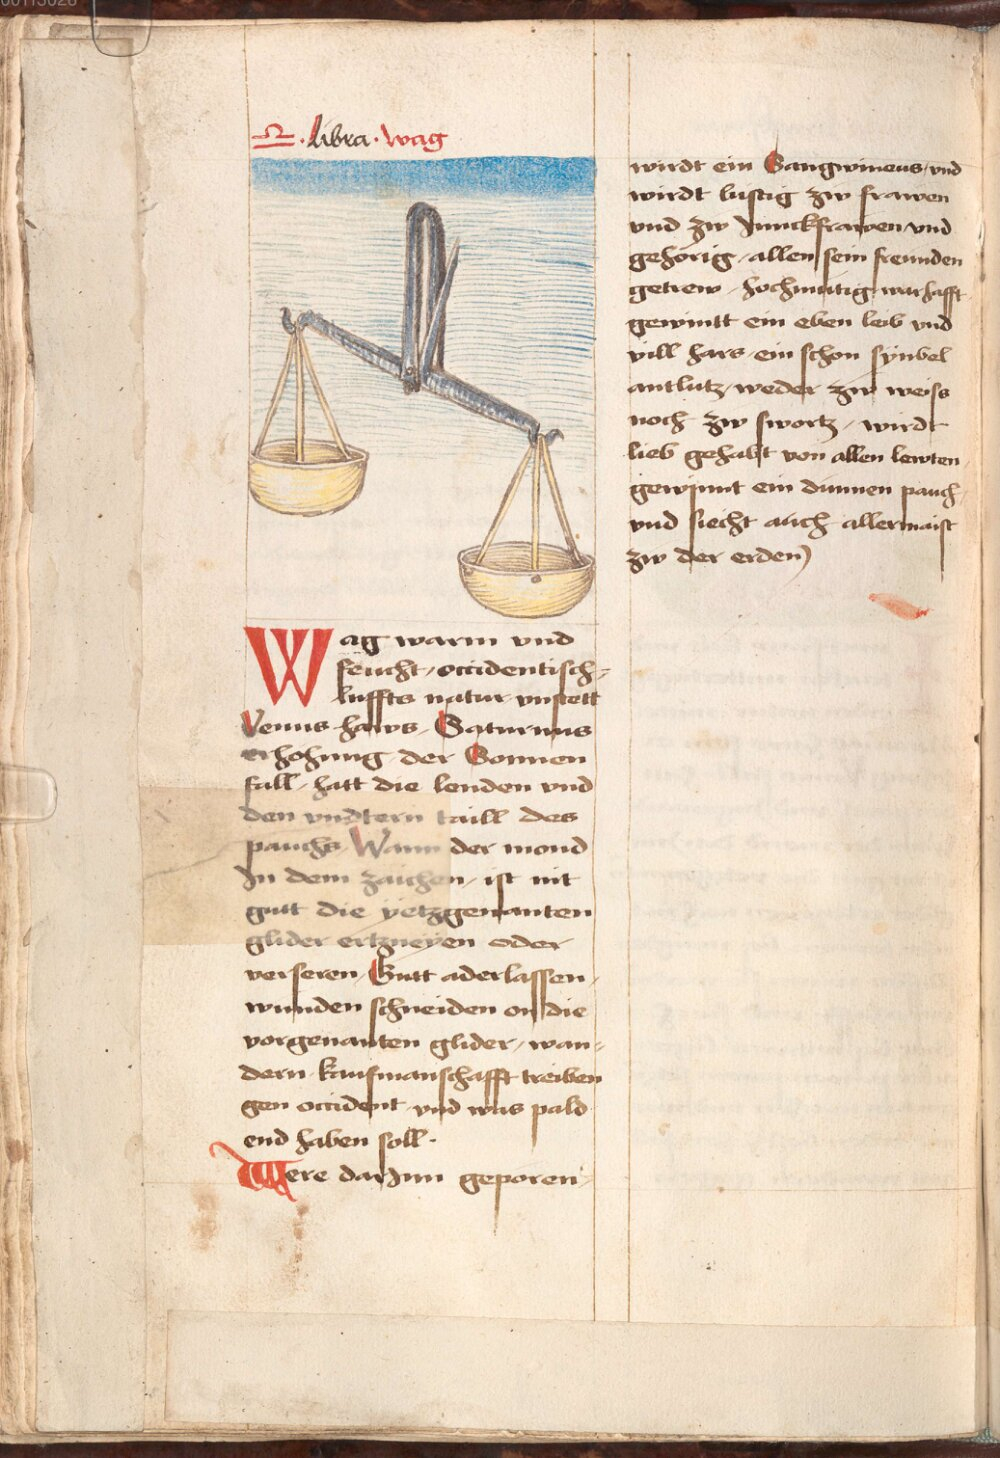 ♎ · libra · wag
Wag warm vnd
feucht / occidentisch=
luffts natur vnstett
Venus haws / Saturnus
erhohung / der Sonnen
fall / hatt die lenden vnd
den vndtern taill des
pauchs / Wann der mond
In dem zaichen / ist nit
gutt die yetzgenanten
glider ertzneyen oder
verseren / Gutt aderlassen /
wunden schneiden on die
vorgenanten glider / wan=
dern / kaufmanschafft treiben
gen occident / vnd was pald
end haben soll ·
Were darJnn geporen /
wirdt ein Sangwineus / vnd
wirdt lustig zw frawen
vnd zw Junckfrawen / vnd
gehorig / allen sein freunden
getrew / hochmutig warhafft
gewintt ein eben leib vnd
vill hars / ein schon synbel
antlutz / weder zw weiss
noch zw swortz / wirdt
lieb gehabt von allen lewten
gewinnt ein dunnen pauch /
vnd siecht auch allermaist
zw der erden)